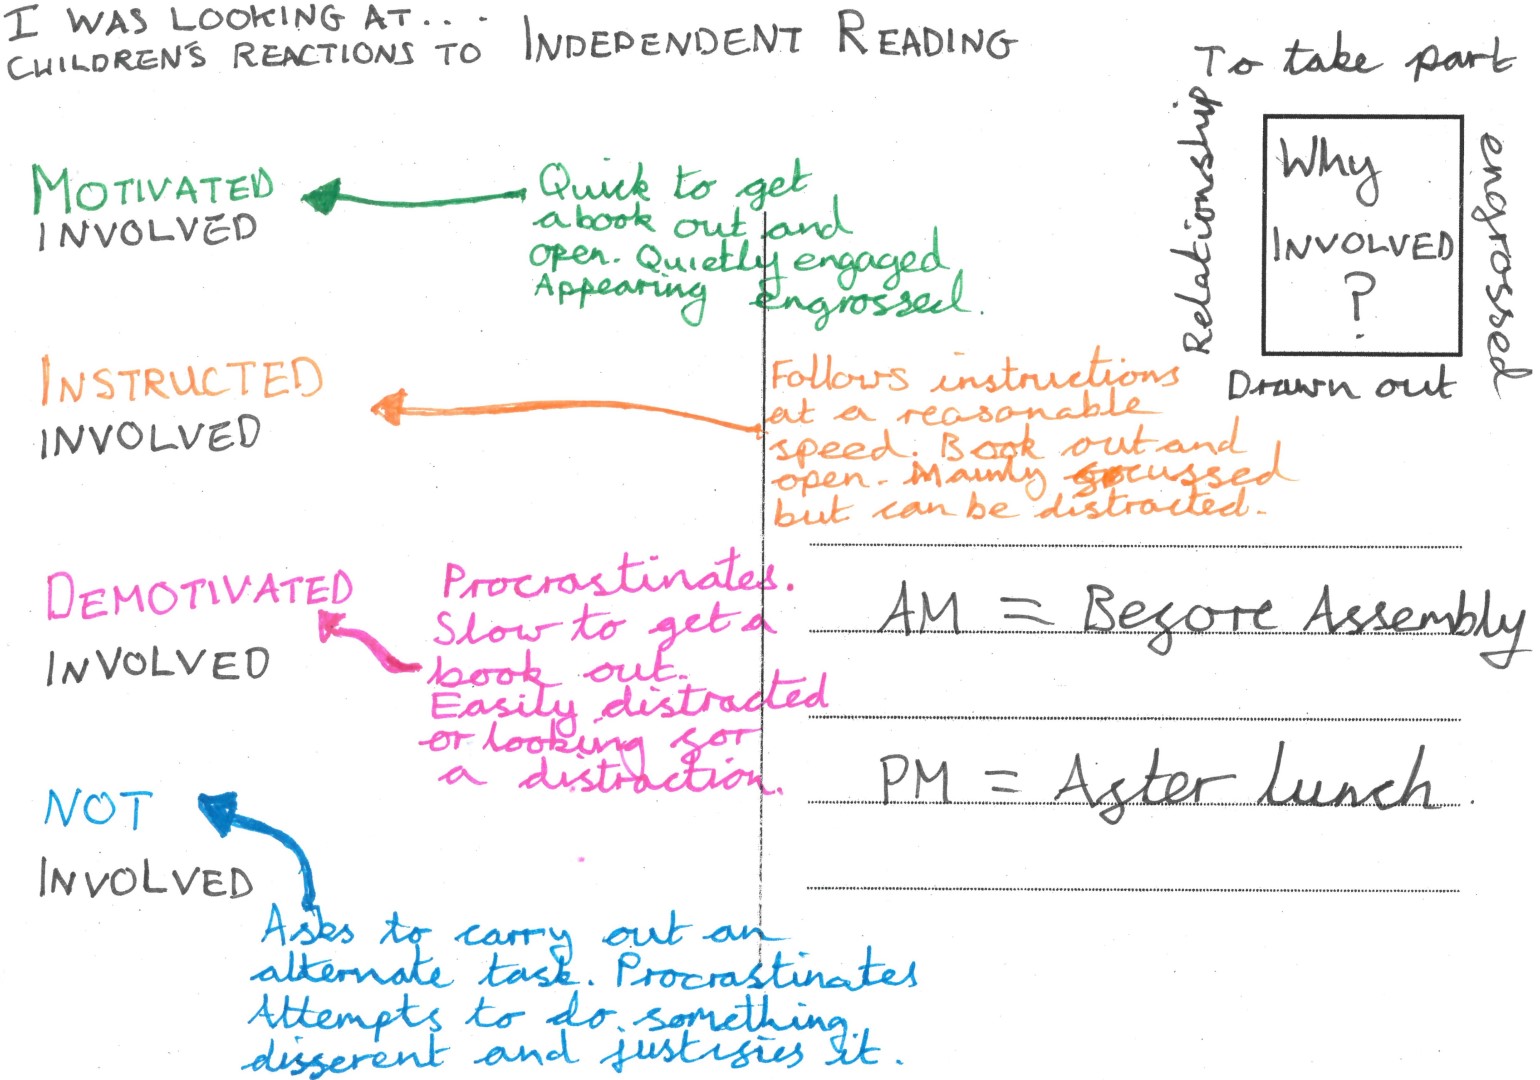 I WAS LOOKING AT...
CHILDREN'S REACTIONS TO INDEPENDENT READING
MOTIVATED
INVOLVED
Quick to get
a book out and
open. Quietly engaged
Appearing engrossed.
To take part
Relationship
Why
INVOLVED
?
engrossed
Drawn out
INSTRUCTED
INVOLVED
Follows instructions
at a reasonable
speed. Book out and
open. Mainly focussed
but can be distracted.
DEMOTIVATED
INVOLVED
Procrastinates.
Slow to get a
book out.
Easily distracted
or looking for
a distraction.
AM = Before Assembly
PM = After lunch.
NOT
INVOLVED
Asks to carry out an
alternate task. Procrastinates
Attempts to do something
different and justifies it.